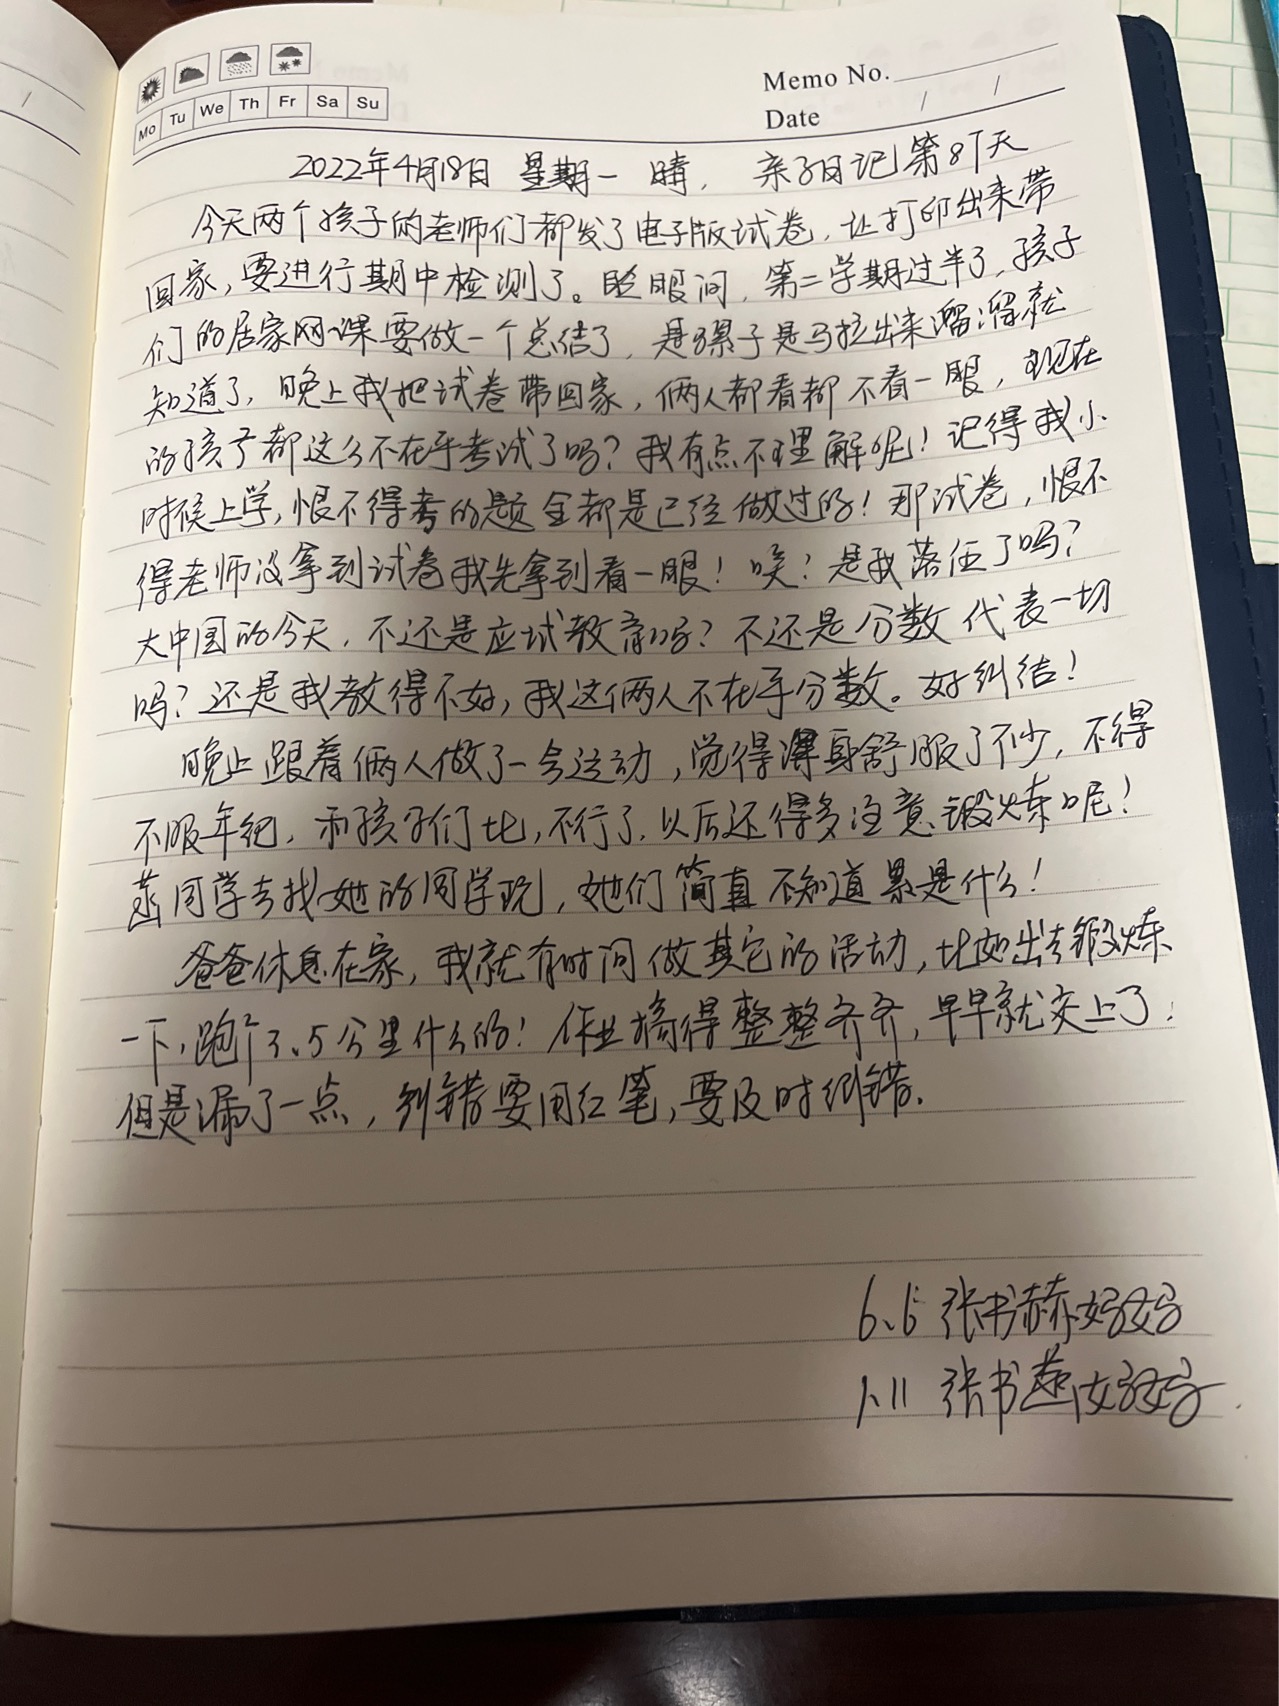 Mo Tu We Th Fr Sa Su
Memo No.
Date / /
2022年4月18日 星期一 晴. 亲子日记第87天
今天两个孩子的老师们都发了电子版试卷,让打印出来带
回家,要进行期中检测了。眨眼间,第二学期过半了,孩子
们的居家网课要做一个总结了,是骡子是马拉出来溜溜就
知道了,晚上我把试卷带回家,俩人都看都不看一眼,现在
的孩子都这么不在乎考试了吗?我有点不理解呢!记得我小
时候上学,恨不得考的题全都是已经做过的!那试卷,恨不
得老师没拿到试卷我先拿到看一眼!唉!是我落伍了吗?
大中国的今天,不还是应试教育吗?不还是分数代表一切
吗?还是我教得不好,我这俩人不在乎分数。好纠结!
晚上跟着俩人做了一会运动,觉得浑身舒服了不少,不得
不服年纪,和孩子们比,不行了,以后还得多注意锻炼呢!
同学去找她的同学玩,她们简直不知道累是什么!
爸爸休息在家,我就有时间做其它的活动,比如出去锻炼
一下,跑个3、5公里什么的!作业搞得整整齐齐,早早就交上了,
但是漏了一点,纠错要用红笔,要及时纠错.
6.6 张书赫妈妈
1.11 张书妈妈